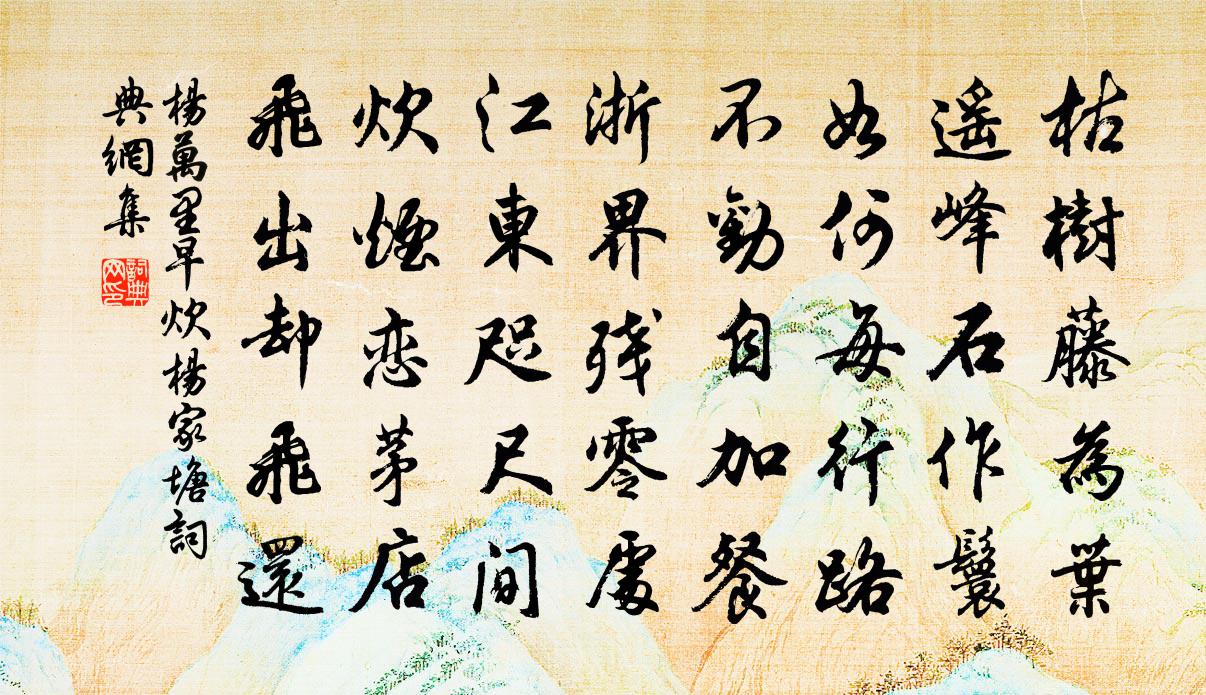 枯樹藤為葉
遥峰石作鬟
如何每行路
不勸自加餐
浙界残零處
江東咫尺間
炊煙恋茅店
飛出却飛還
楊萬里早炊楊家塘詞
典網集
詞典網印